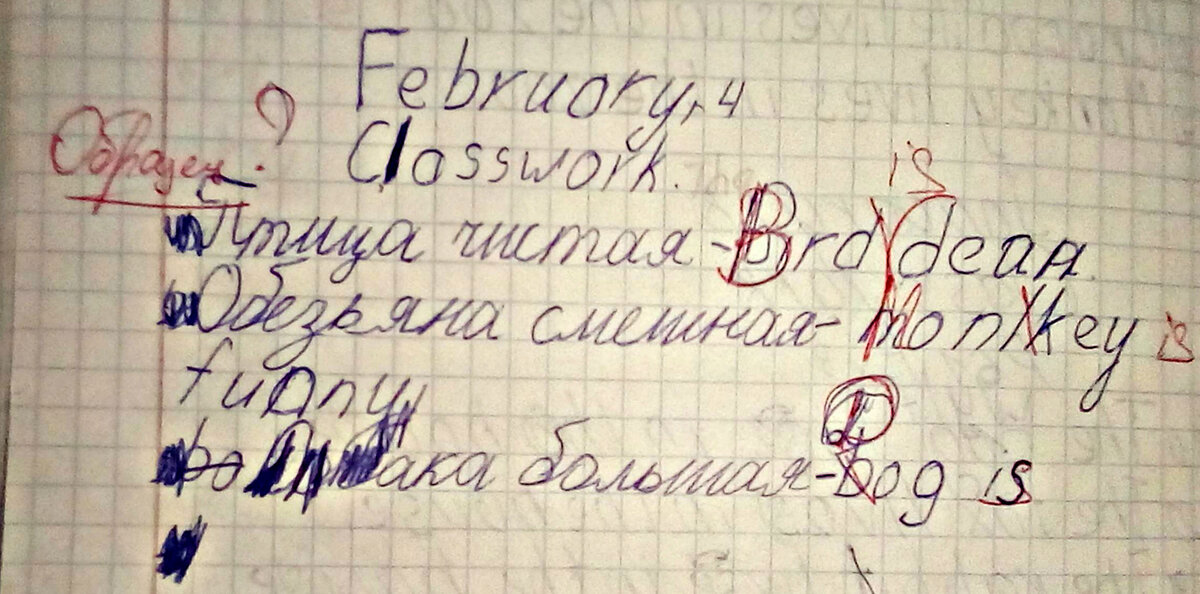 February, 4
Образец. ?
Classwork.
is
Птица чистая - Bird clean
Обезьяна смешная - Monkey is
funny,
большая - Dog is